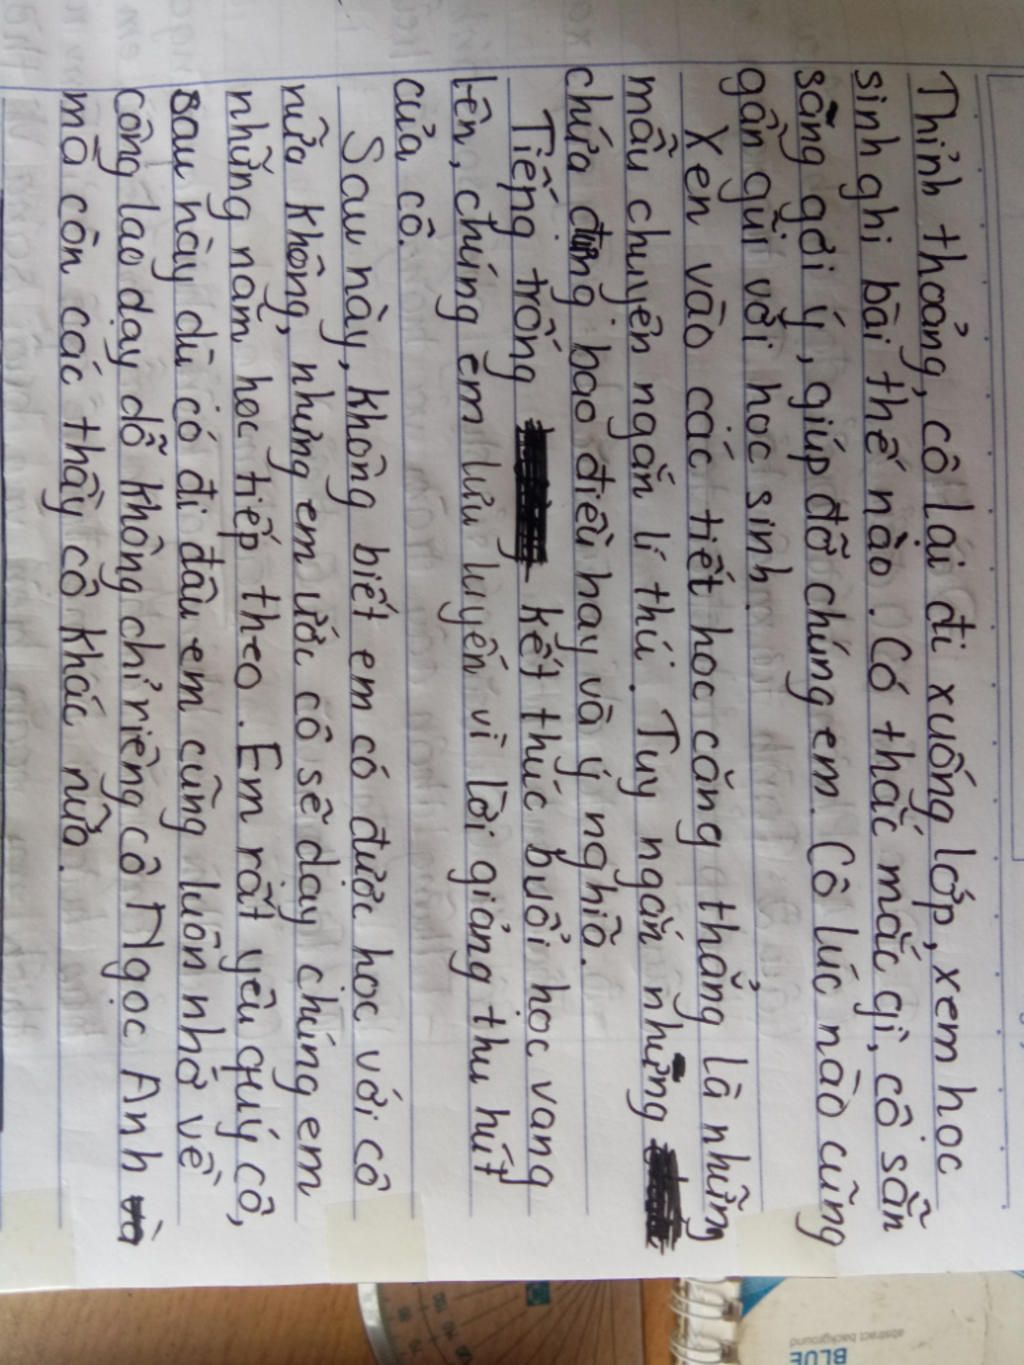 Thỉnh thoảng, cô lại đi xuống lớp, xem học
sinh ghi bài thế nào. Có thắc mắc gì, cô sẵn
sàng gợi ý, giúp đỡ chúng em. Cô lúc nào cũng
gần gũi với học sinh.
Xen vào các tiết học căng thẳng là những
mẩu chuyện ngắn lí thú. Tuy ngắn nhưng
chứa đựng bao điều hay và ý nghĩa.
Tiếng trống kết thúc buổi học vang
lên, chúng em lưu luyến vì lời giảng thu hút
của cô.
Sau này, không biết em có được học với cô
nữa không, nhưng em ước cô sẽ dạy chúng em
những năm học tiếp theo. Em rất yêu quý cô,
sau này dù có đi đâu em cũng luôn nhớ về
công lao dạy dỗ không chỉ riêng cô Ngọc Anh
mà còn các thầy cô khác nữa.
abstract background
BLUE